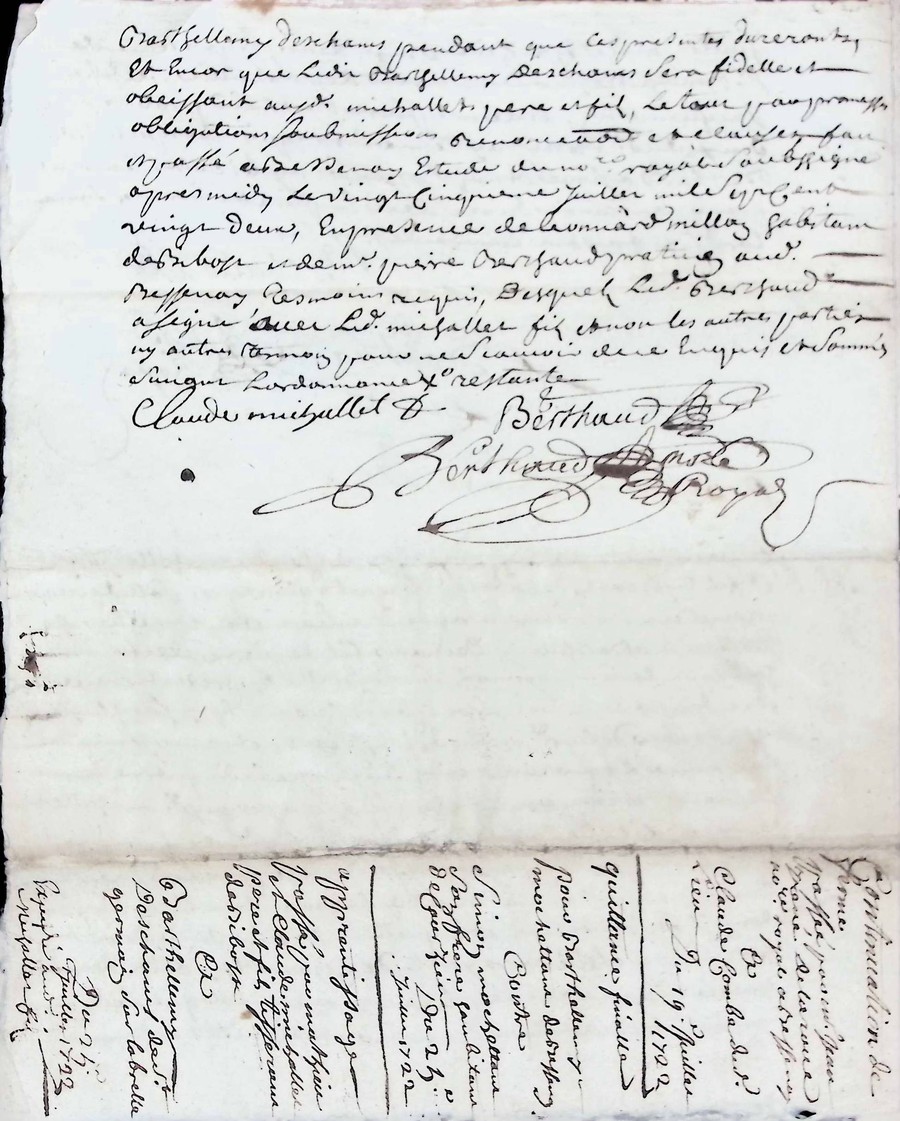 Barthellemy deschams pendant que ces presentes dureronts,
Et Encor que Ledit Barthellemy Deschams Sera fidelle et
obeissant ausd. michallets pere et fils, Le tout par promesses
obligations soubmissions renonciaõn et clauses fait
et passé a Bessenay Estude du nore. royal Soubssigné
apres midy Le vingt Cinquieme Juillet mil Sept Cent
vingt deux, En presence de Leonnard millon habitant
de Ribost et de mr. pierre Berthaud praticien aud.
Bessenay Tesmoins requis, Desquels Led. Berthaud
a signé avec Led. michallet fils et non les autres parties
ny autres temoin pour ne Scavoir de ce Enquis et Sommés
Suivant Lordonnance restante
Claude michallet Berthaud
Berthaud nore
Royal
Continuation de
ferme
passé par
nore royal a bessenay
Et
Claude Combe dud.
Lieu Du 19e Juillet
1722
quittance finalle
pour barthellemy
mochallans de bessenay
Contre
Simon mochallans
habitant
de Courzieu Du 24
Juin 1722
apprantissage
passé par
et Claude michallet
pere et fils tisserans
de Ribost
Et
Barthellemy
Deschams de St
germain Sur la brelle
Du 25
Juillet 1722
Expedié aud.
Michallet fils